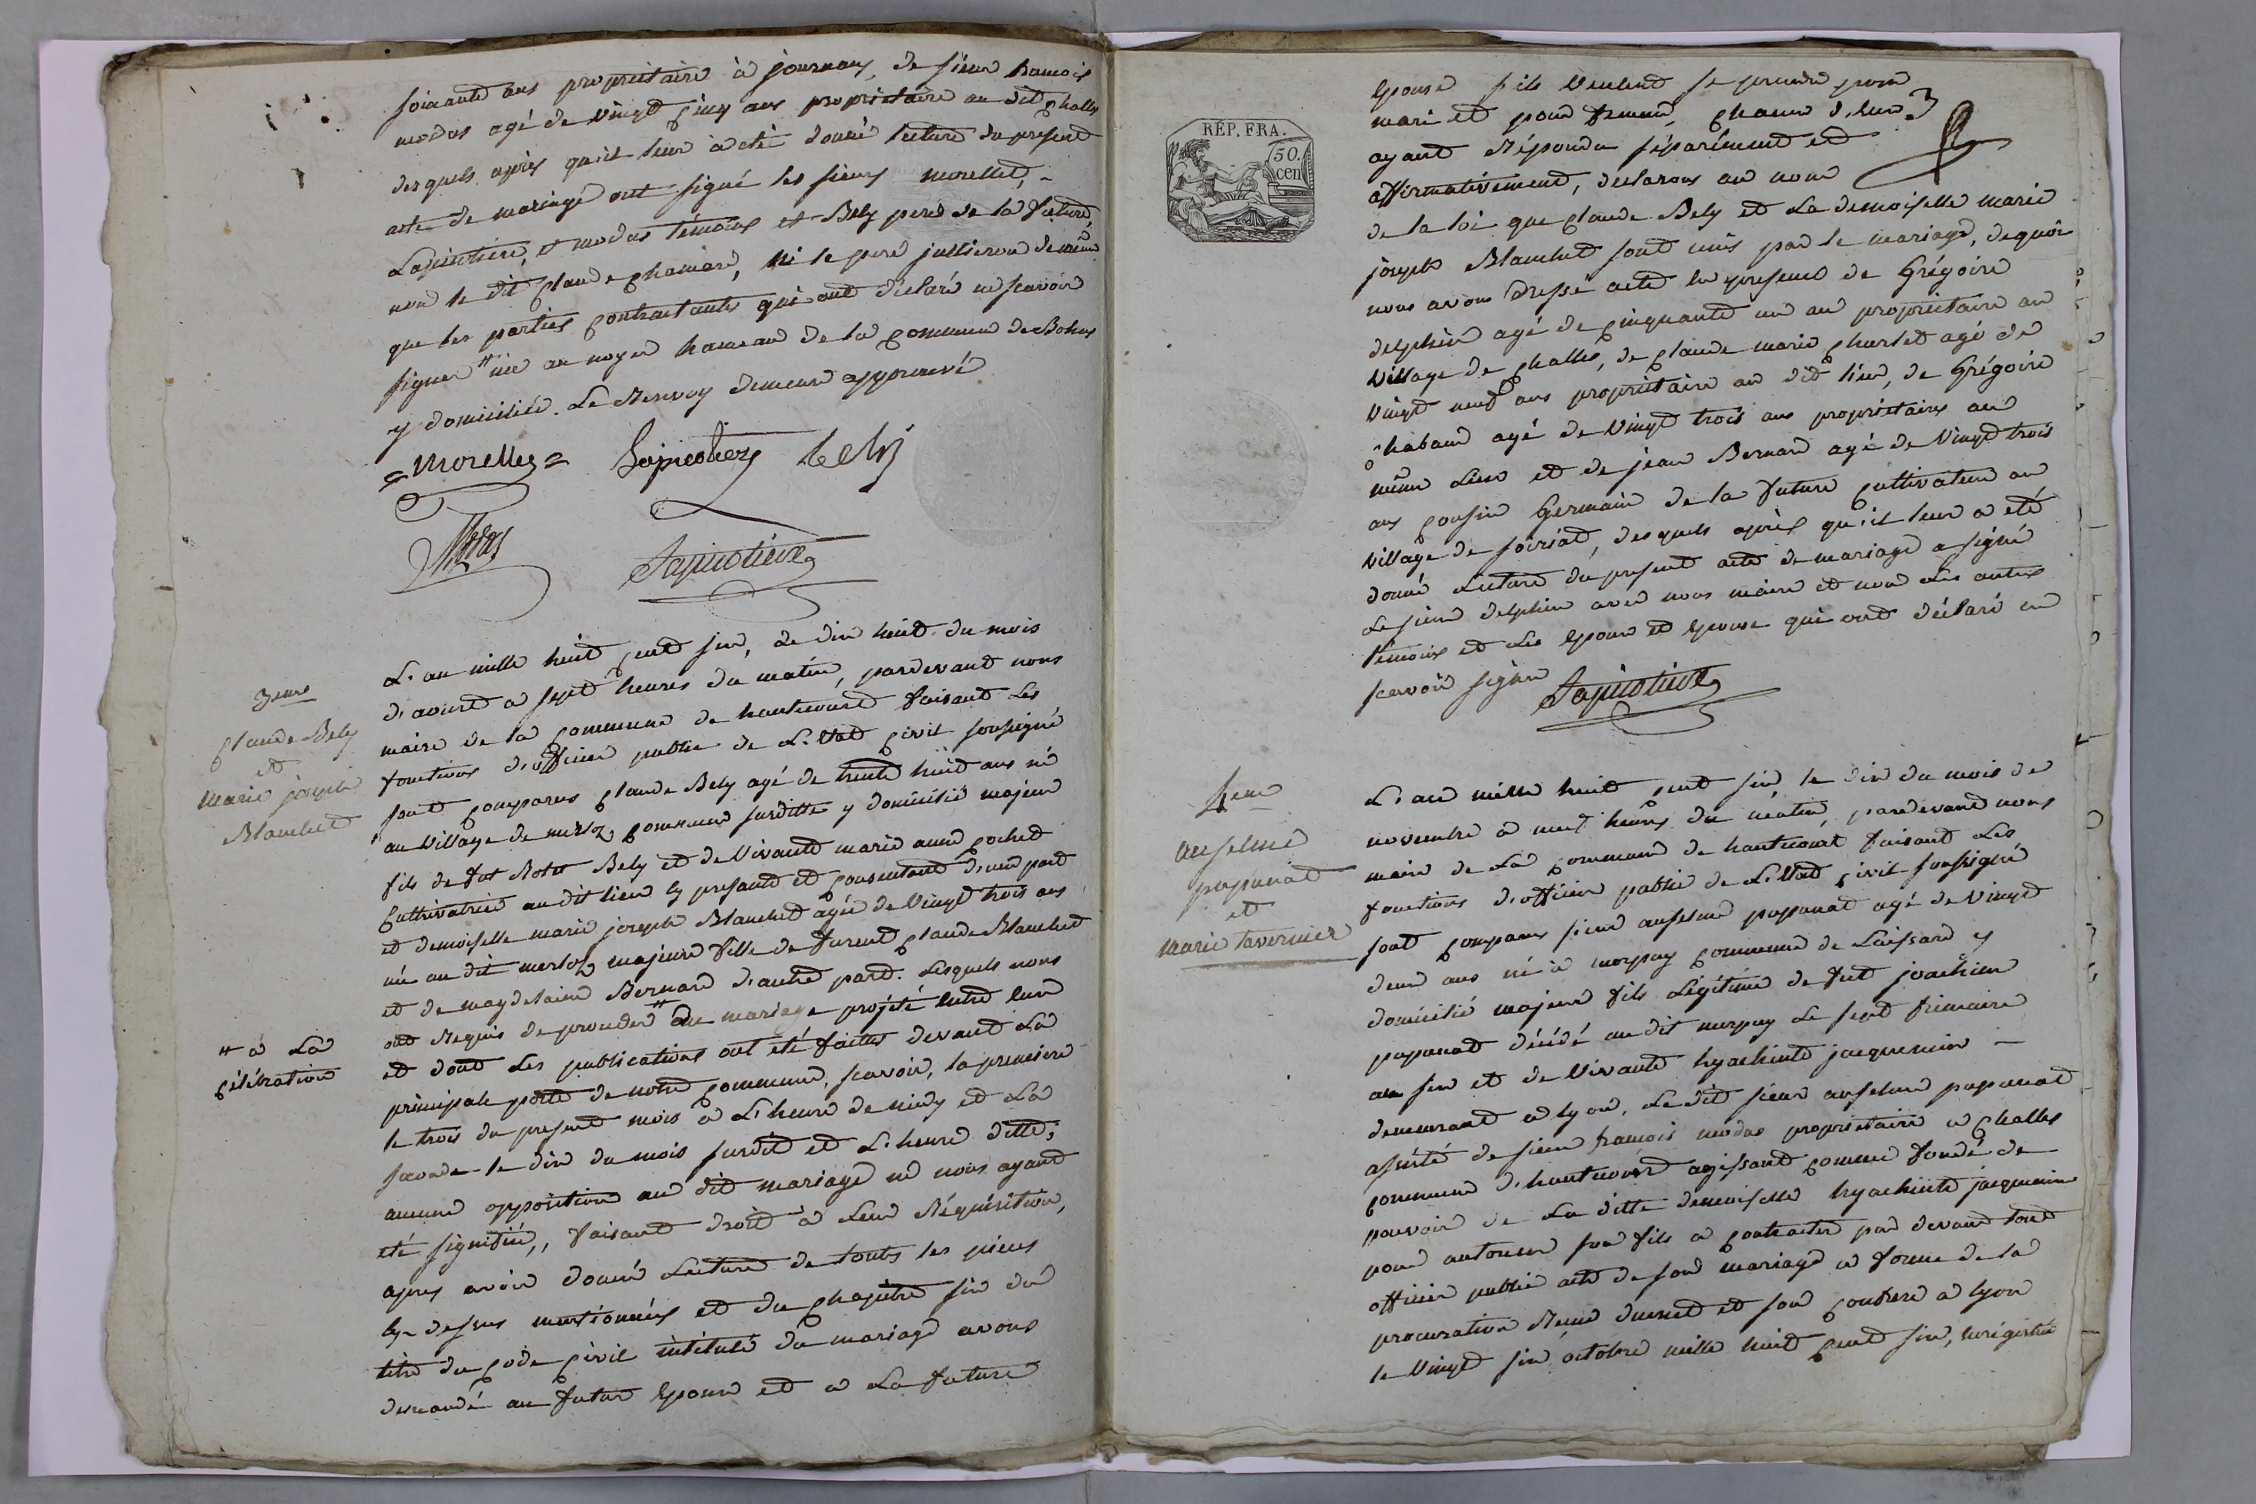 soixante ans propriétaire à journans, de sieur francois
modas agé de vingt cinq ans propriétaire au dit challes
desquels après qu'il leur à été donné lecture du present
acte de mariage ont signé les sieurs morellet, -
Lapicotiere, et modas témoins et Bely pere de la future,
non le dit claude chanard, ni le pere
que les parties contractantes qui ont déclaré ne scavoir
signer # née au noyer hameau de la commune de Bohas
y domiciliée. Le Renvoy demeure approuvé
Morellez Lapicotiere bely
Modas Lapicotiere
3eme
Claude Bely
et
Marie joseph
Blanchet
L'an mille huit cent six, le dix huit du mois
d'aoust a sept heures du matin, pardevant nous
maire de la commune de hautecourt faisant les
fonctions d'officier public de L'Etat civil soussigné
sont comparus claude Bely agé de trente huit ans né
au village de merloz commune susditte y domicilié majeur
fils de fut Bely et de vivante marie anne pochet
cultivatrice au dit lieu cy presante et consentante d'une part
et demoiselle marie joseph Blanchet agée de vingt trois ans
née au dit merloz majeure fille de furent claude Blanchet
et de magdelaine Bernard d'autre part. Lesquels nous
ont Requis de proceder # du mariage projété entre eux
# a La
célébration
et dont Les publications ont été faittes devant La
principale porte de notre commune, scavoir, la premiere
le trois du present mois à L'heure de midy et La
seconde le dix du mois susdit et L'heure ditte;
aucune opposition au dit mariage ne nous ayant
été signifiée, faisant droit à Leur Réquisition,
apres avoir donné Lecture de touts les pieces
cy dessus mentionnées et du chapitre six du
titre du code civil intitulé du mariage avons
demandé au futur Epoux et a La future
RÉP. FRA.
50.
cen
Epouse s'ils veulent se prendre pour
mari et pour femme, chacun d'eux
ayant Répondu séparément et
affirmativement, declarons au nom
de la loi que claude Bely et La demoiselle marie
joseph Blanchet sont unis par le mariage, de quoi
nous avons dressé acte en presence de Grégoire
delphin agé de cinquante un ans propriétaire au
village de challes, de claude marie churlet agé de
vingt neuf ans propriétaire au dit lieu, de Grégoire
chaband agé de vingt trois ans propriétaires au
même Lieu et de jean Bernard agé de vingt trois
ans cousin Germain de la future cultivateur au
village de soiriat, desquels après qu'il leur a été
donné Lecture du present acte de mariage a signé
Le sieur delphin avec nous maire et non Les autres
témoins et Les epoux et epouse qui ont déclaré ne
scavoir signer
Lapicotiere
4eme
anselme
papanat
et
marie tavernier
L'an mille huit cent six, le dix du mois de
novembre a neuf heures du matin, pardevant nous
maire de La commune de hautecourt faisant Les
fonctions d'officier public de L'Etat civil soussigné
sont comparus sieur anselme papanat agé de vingt
deux ans né à morpay commune de Laissard y
domicilié majeur fils Légitime de fut joachim
papanat décédé au dit morpay Le sept frimaire
an six et de vivante hyachinte jacquemin -
demeurant a lyon, Le dit sieur anselme papanat
assisté de sieur francois modas propriétaire a challes
commune d'hautecourt agissant comme fondé de
pouvoir de La ditte demoiselle hyachinte jacquemin
pour autoriser son fils a contracter par devant tout
officier public acte de son mariage a forme de la
procuration et son confrere a lyon
le vingt six octobre mille huit cent six, enrégistré